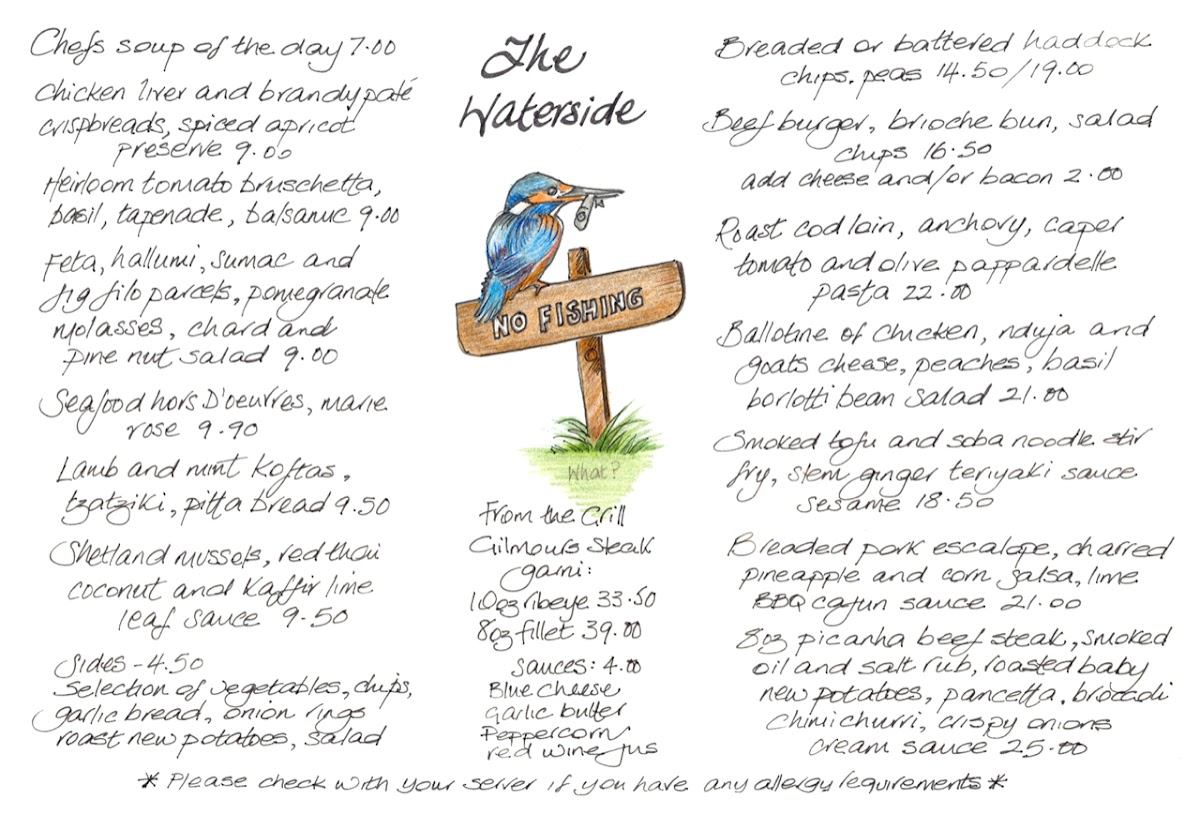 Chefs soup of the day 7.00
Chicken liver and brandy paté
crispbreads, spiced apricot
preserve 9.00
Heirloom tomato bruschetta,
basil, tapenade, balsamic 9.00
Feta, hallumi, sumac and
fig filo parcels, pomegranate
molasses, chard and
pine nut salad 9.00
Seafood hors D'oeuvres, marie
rose 9.90
Lamb and mint koftas,
tzatziki, pitta bread 9.50
Shetland mussels, red thai
coconut and Kaffir lime
leaf sauce 9.50
Sides - 4.50
Selection of vegetables, chips,
garlic bread, onion rings
roast new potatoes, salad
The
Waterside
NO FISHING
What?
From the Grill
Gilmours Steak
garni:
10oz ribeye 33.50
8oz fillet 39.00
Sauces: 4.00
Blue Cheese
Garlic butter
Peppercorn
red wine jus
Breaded or battered haddock
chips. peas 14.50/19.00
Beef burger, brioche bun, salad
chips 16.50
add cheese and/or bacon 2.00
Roast cod loin, anchovy, caper
tomato and olive pappardelle
pasta 22.00
Ballotine of chicken, nduja and
goats cheese, peaches, basil
borlotti bean salad 21.00
Smoked tofu and soba noodle stir
fry, stem ginger teriyaki sauce
sesame 18.50
Breaded pork escalope, charred
pineapple and corn salsa, lime
BBQ cajun sauce 21.00
8oz picanha beef steak, smoked
oil and salt rub, roasted baby
new potatoes, pancetta, broccoli
chimichurri, crispy onions
cream sauce 25.00
* Please check with your server if you have any allergy requirements *